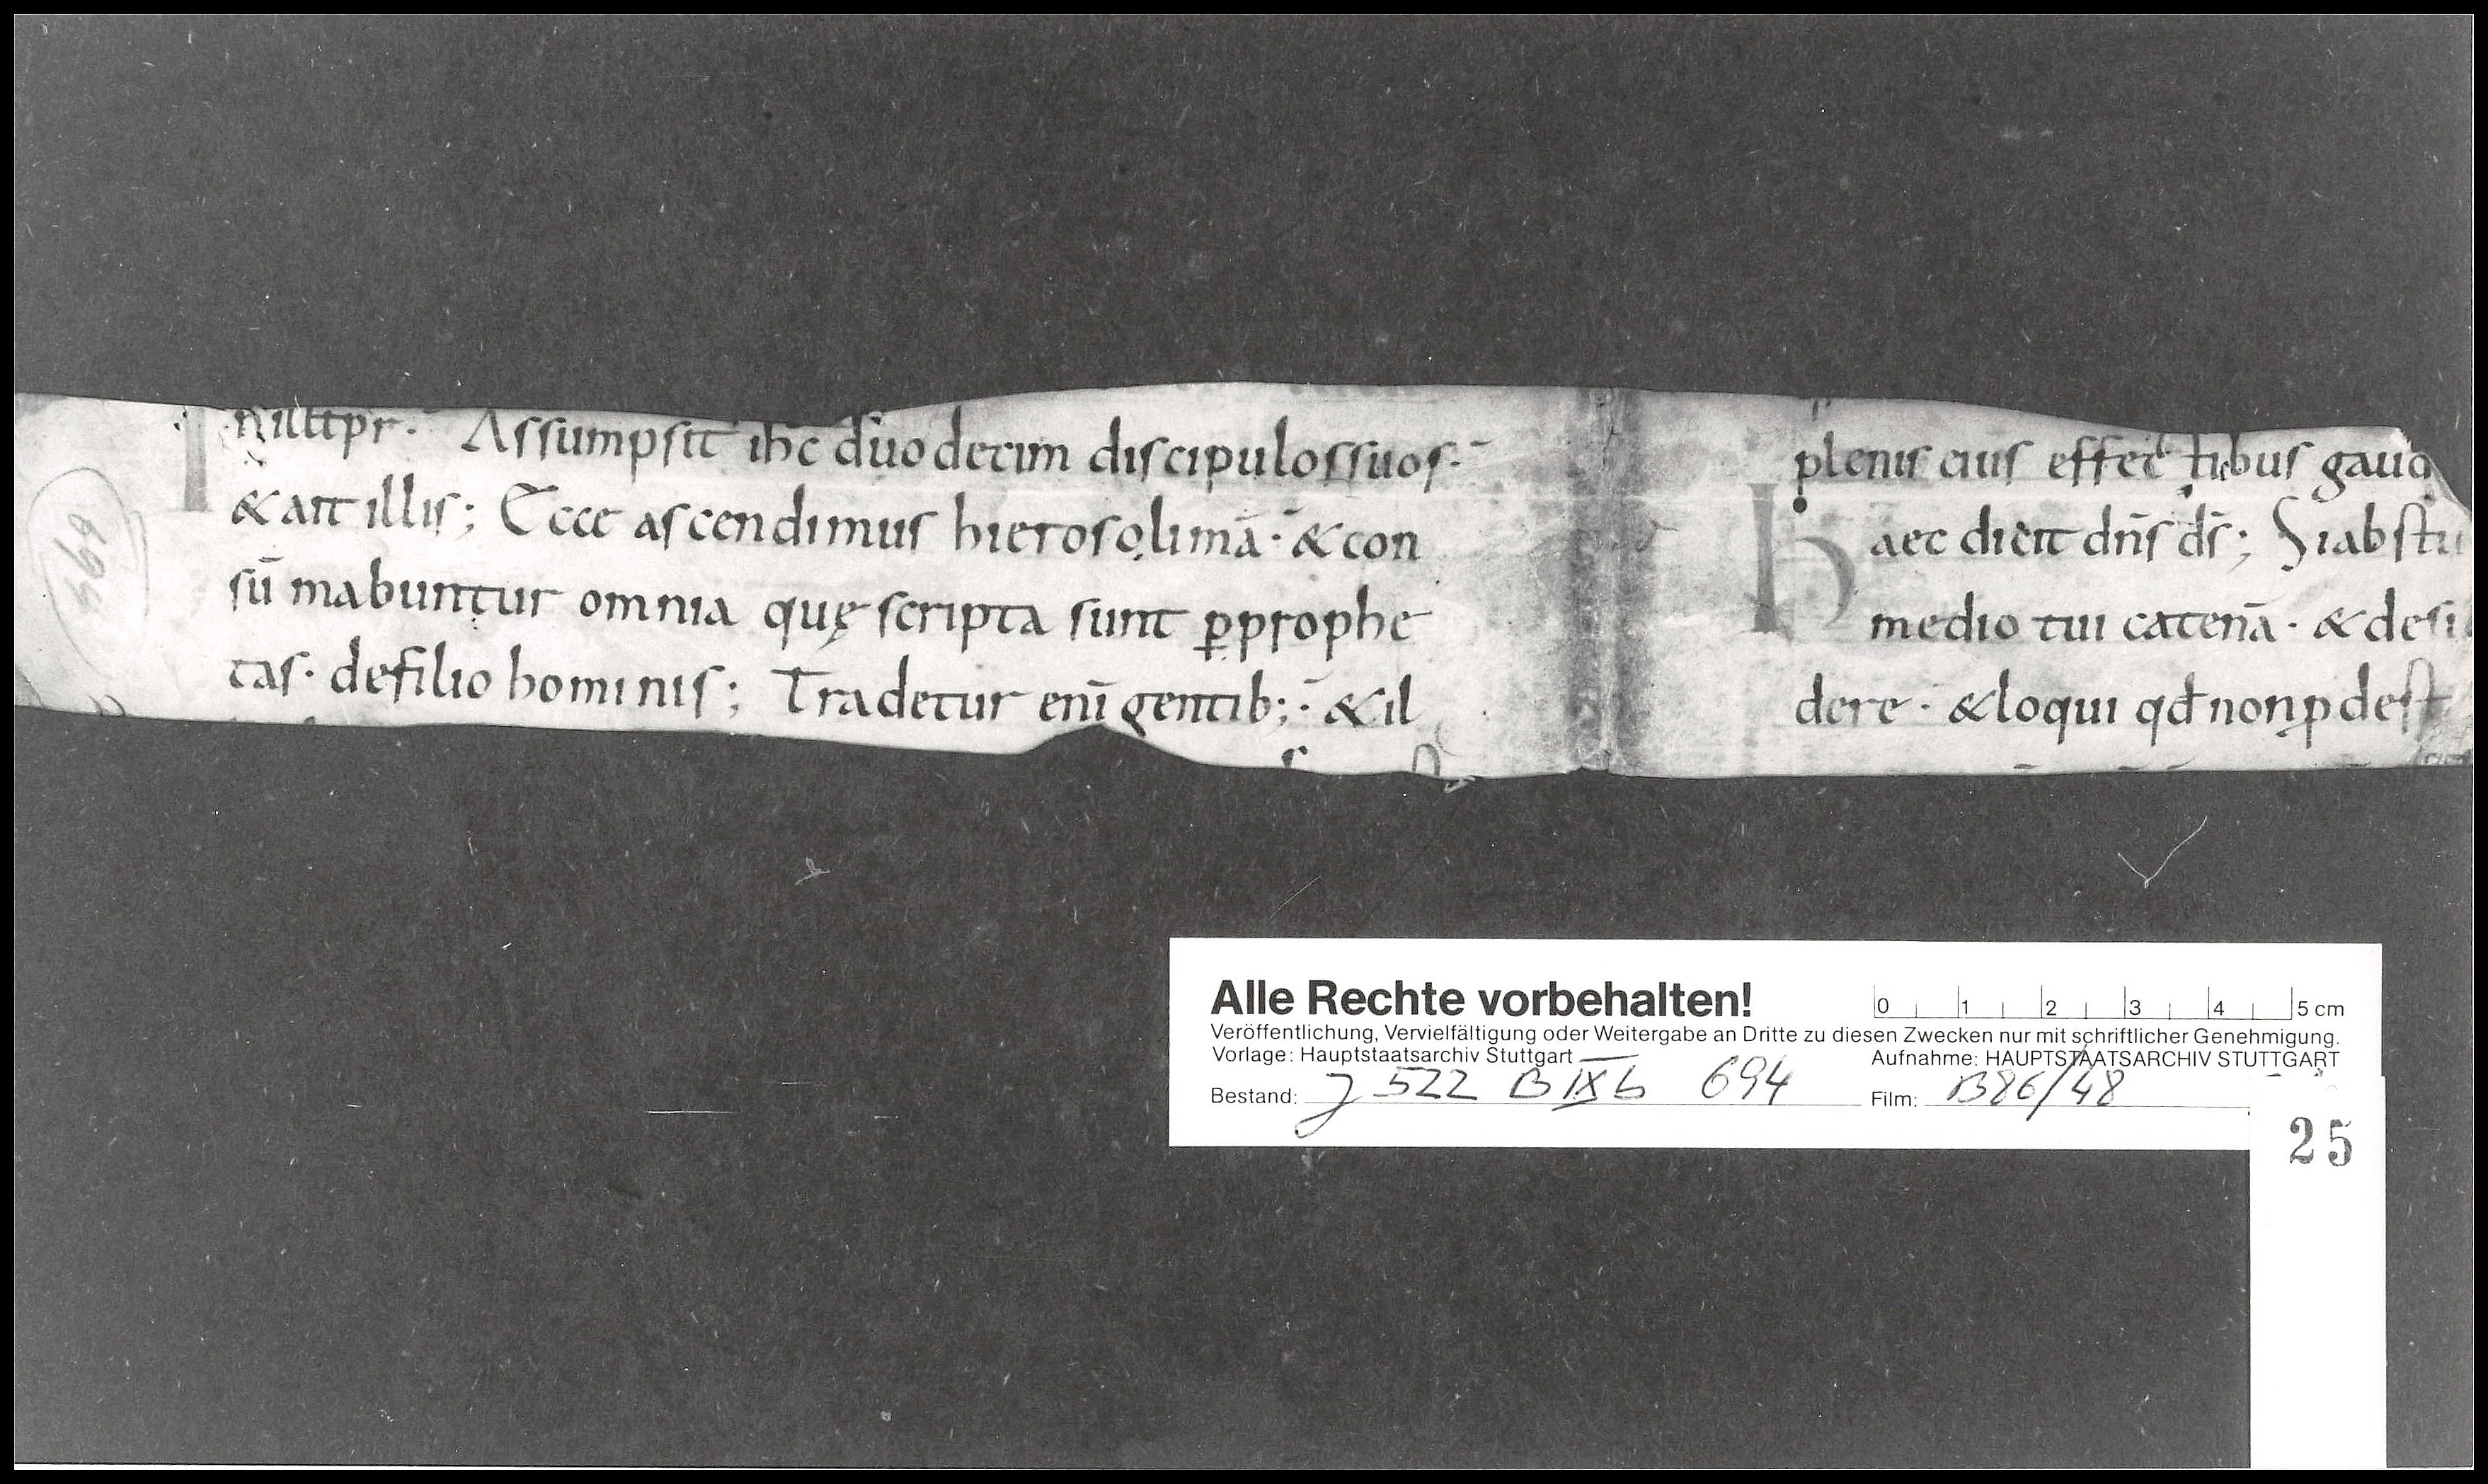 I n illt pr· Assumpsit ihc duodecim discipulos suos·
& ait illis; Ecce ascendimus hierosolimā· & con
sūmabuntur omnia quę scripta sunt ꝑ prophe
tas· de filio hominis; Tradetur enī gentib;· & il
plenis eius effectibus gaud
Haec dicit dn̄s ds̄; Si abstu
medio tui catenā· & desi
dere· & loqui qđ non ꝓdest
569
Alle Rechte vorbehalten!
0 1 2 3 4 5 cm
Veröffentlichung, Vervielfältigung oder Weitergabe an Dritte zu diesen Zwecken nur mit schriftlicher Genehmigung.
Vorlage: Hauptstaatsarchiv Stuttgart
Aufnahme: HAUPTSTAATSARCHIV STUTTGART
Bestand: J 522 B IX b 694
Film: B86/48
25